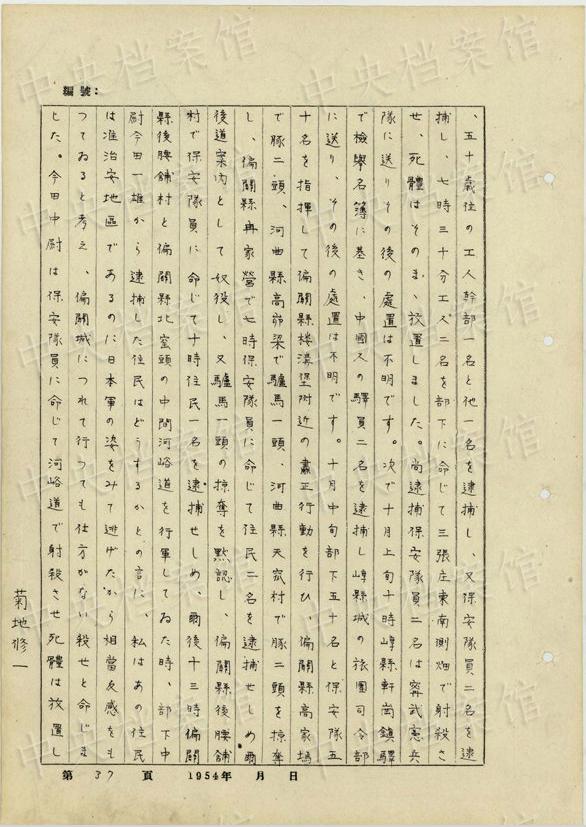 編號：
、五十歳位の工人幹部一名と他一名を逮捕し、又保安隊員二名を逮
捕し、七時三十分工人二名を部下に命じて三張庄東南側畑で射殺さ
せ、死體はそのまゝ放置しました。尚逮捕保安隊員二名は寧武憲兵
隊に送りその後の處置は不明です。次で十月上旬十時崞縣軒崗鎮驛
で檢擧名簿に基き、中國人の驛員二名を逮捕し崞縣城の旅團司令部
に送り、その後の處置は不明です。十月中旬部下五十名と保安隊五
十名を指揮して偏關縣樓溝堡附近の肅正行動を行ひ、偏關縣高家塢
で豚二頭、河曲縣高峁梁で驢馬一頭、河曲縣天家村で豚二頭を掠奪
し、偏關縣冉家營で七時保安隊員に命じて住民二名を逮捕せしめ爾
後道案内として奴役し、又驢馬一頭の掠奪を黙認し、偏關縣後腰舖
村で保安隊員に命じて十時住民一名を逮捕せしめ、爾後十三時偏關
縣後腰舖村と偏關縣北窑頭の中間河峪道を行軍してゐた時、部下中
尉今田一雄から逮捕した住民はどうするかとの言に、私はあの住民
は准治安地區であるのに日本軍の姿をみて逃げたから相當反感をも
つてゐると考え、偏關城につれて行つても仕方がない殺せと命じま
した。今田中尉は保安隊員に命じて河峪道で射殺させ死體は放置し
菊地修一
第 37 頁 1954年 月 日
中央档案馆